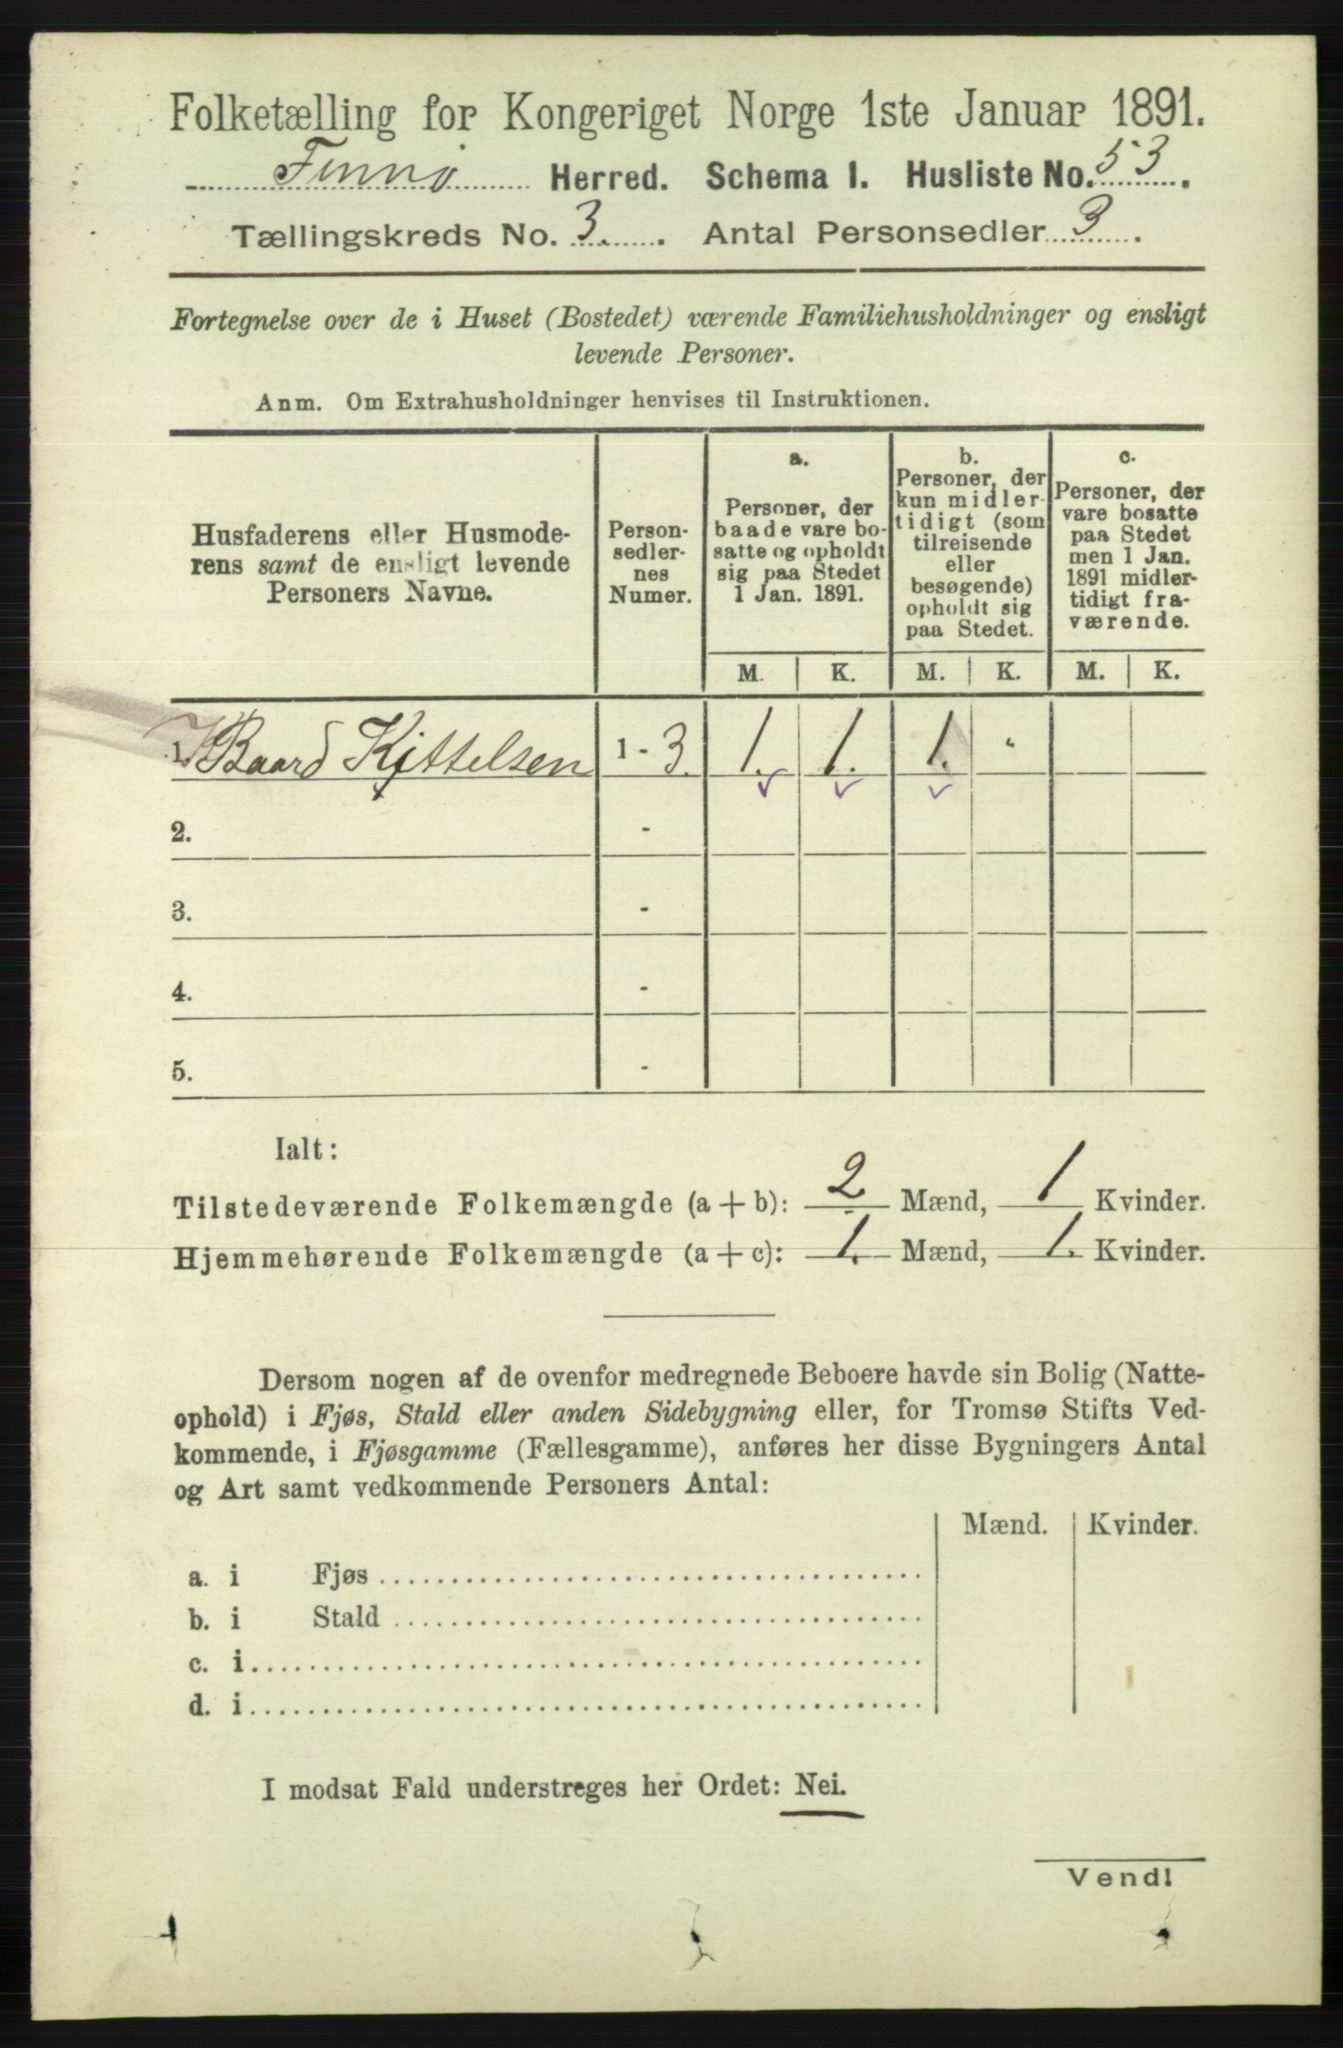 Folketælling for Kongeriget Norge 1ste Januar 1891.
Finnø Herred. Schema I. Husliste No. 53.
Tællingskreds No. 3. Antal Personsedler 3.
Fortegnelse over de i Huset (Bostedet) værende Familiehusholdninger og ensligt
levende Personer.
Anm. Om Extrahusholdninger henvises til Instruktionen.
Husfaderens eller Husmode-
rens samt de ensligt levende
Personers Navne.
Person-
sedler-
nes
Numer.
a.
Personer, der
baade vare bo-
satte og opholdt
sig paa Stedet
1 Jan. 1891.
b.
Personer, der
kun midler-
tidigt (som
tilreisende
eller
besøgende)
opholdt sig
paa Stedet.
c.
Personer, der
vare bosatte
paa Stedet
men 1 Jan.
1891 midler-
tidigt fra-
værende.
M. K. M. K. M. K.
1. Baard Kittelsen 1 - 3. 1. 1. 1. "
2. -
3. -
4. -
5. -
Ialt:
Tilstedeværende Folkemængde (a + b): 2 Mænd, 1 Kvinder.
Hjemmehørende Folkemængde (a + c): 1. Mænd, 1. Kvinder.
Dersom nogen af de ovenfor medregnede Beboere havde sin Bolig (Natte-
ophold) i Fjøs, Stald eller anden Sidebygning eller, for Tromsø Stifts Ved-
kommende, i Fjøsgamme (Fællesgamme), anføres her disse Bygningers Antal
og Art samt vedkommende Personers Antal:
Mænd. Kvinder.
a. i Fjøs
b. i Stald
c. i
d. i
I modsat Fald understreges her Ordet: Nei.
Vend!